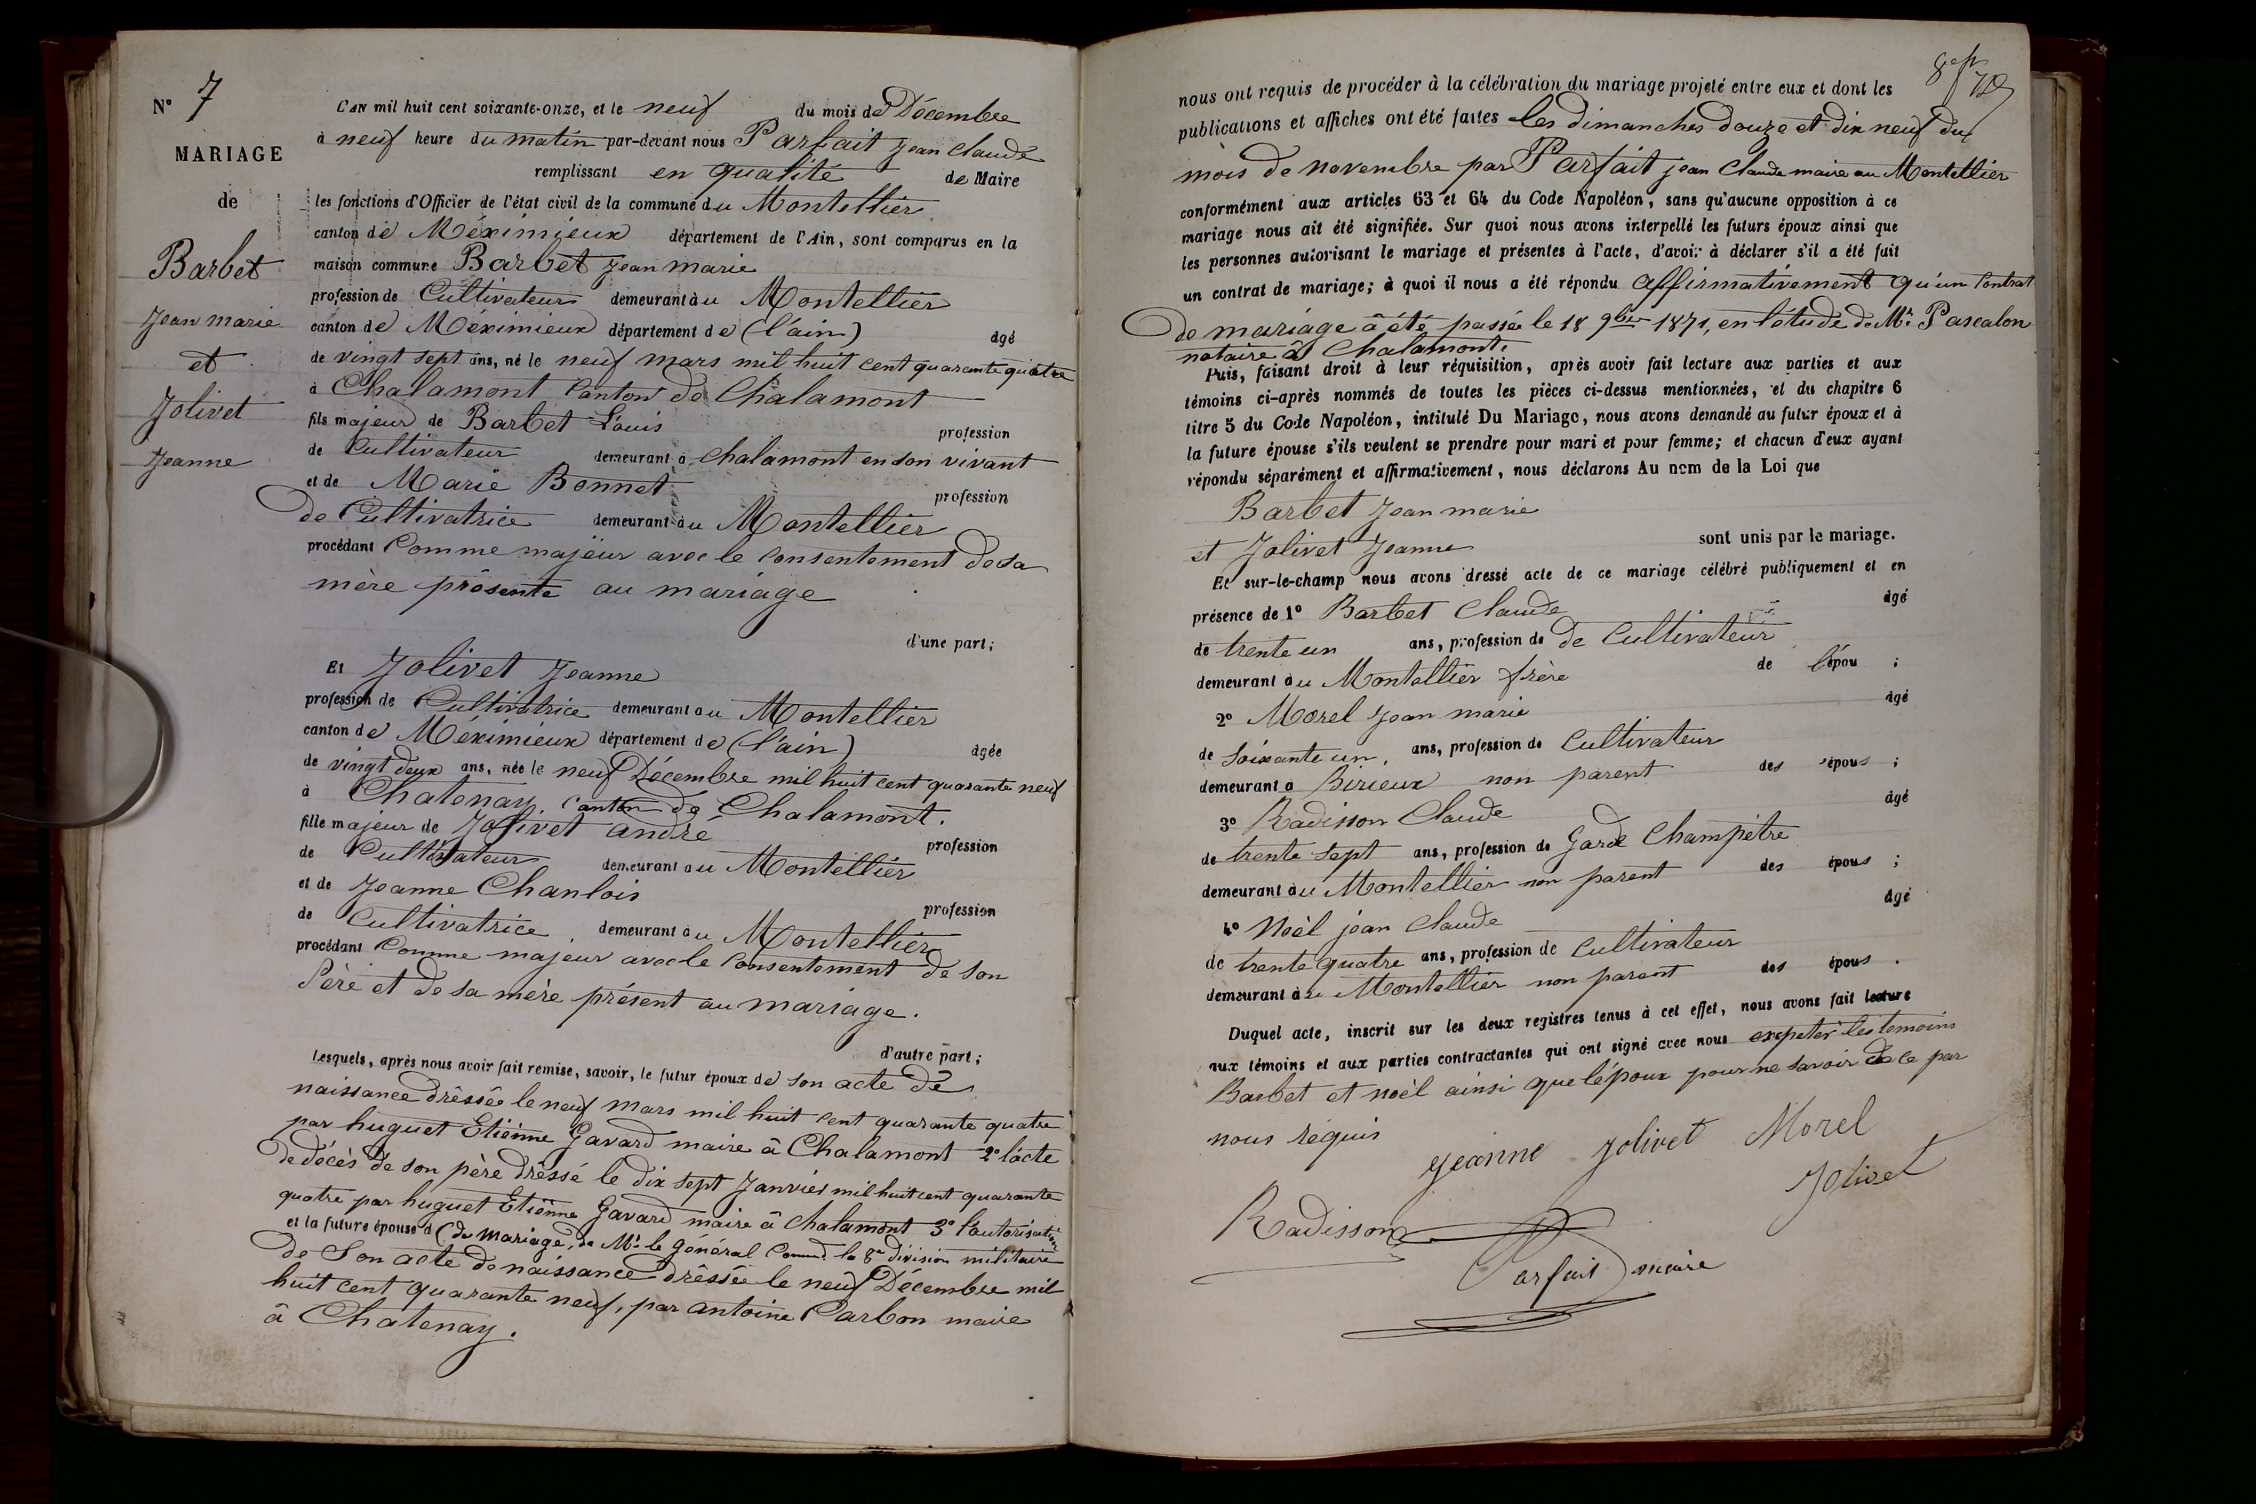 N° 7
MARIAGE
de
Barbet
Jean marie
et
Jolivet
Jeanne
L'AN mil huit cent soixante-onze, et le neuf du mois de Décembre
à neuf heure du matin par-devant nous Parfait Jean Claude
remplissant en qualité de Maire
les fonctions d'Officier de l'état civil de la commune du Montellier
canton de Méximieux département de l'Ain, sont comparus en la
maison commune Barbet Jean marie
profession de Cultivateur demeurant au Montellier
canton de Méximieux département de (l'ain) âgé
de vingt sept ans, né le neuf mars mil huit cent quarante quatre
à Chalamont Canton de Chalamont
fils majeur de Barbet Louis profession
de Cultivateur demeurant à Chalamont en son vivant
et de Marie Bonnet profession
de Cultivatrice demeurant au Montellier
procédant Comme majeur avec le consentement de sa
mère présente au mariage
d'une part;
Et Jolivet Jeanne
profession de Cultivatrice demeurant au Montellier
canton de Méximieux département de (l'ain) âgée
de vingt deux ans, née le neuf Décembre mil huit cent quarante neuf
à Chatenay, canton de Chalamont.
fille majeur de Jolivet andré profession
de Cultivateur demeurant au Montellier
et de Jeanne Chanlois profession
de Cultivatrice demeurant au Montellier
procédant Comme majeur avec le consentement de son
Père et de sa mère présent au mariage.
d'autre part;
Lesquels, après nous avoir fait remise, savoir, le futur époux de son acte de
naissance dréssée le neuf mars mil huit cent quarante quatre
par huguet Etiénne Gavard maire à Chalamont 2° l'acte
de décès de son père dréssé le dix sept Janvier mil huit cent quarante
quatre par huguet Etiénne Gavard maire à chalamont 3° l'autorisation
et la future épouse d (de mariage, de Mr le Général Command. la 8e division militaire
de Son acte de naissance dréssée le neuf Décembre mil
huit cent quarante neuf, par antoine Carbon maire
à Chatenay.
nous ont requis de procéder à la célébration du mariage projeté entre eux et dont les
publications et affiches ont été faites les dimanches douze et dix neuf du
mois de novembre par Parfait jean Claude maire au Montellier
conformément aux articles 63 et 64 du Code Napoléon, sans qu'aucune opposition à ce
mariage nous ait été signifiée. Sur quoi nous avons interpellé les futurs époux ainsi que
les personnes autorisant le mariage et présentes à l'acte, d'avoir à déclarer s'il a été fait
un contrat de mariage; à quoi il nous a été répondu affirmativement qu'un Contrat
de mariage à été passée le 18 9bre 1871, en l'étude de Mr. Pascalon
notaire à Chalamont.
Puis, faisant droit à leur réquisition, après avoir fait lecture aux parties et aux
témoins ci-après nommés de toutes les pièces ci-dessus mentionnées, et du chapitre 6
titre 5 du Code Napoléon, intitulé Du Mariage, nous avons demandé au futur époux et à
la future épouse s'ils veulent se prendre pour mari et pour femme; et chacun d'eux ayant
répondu séparément et affirmativement, nous déclarons Au nom de la Loi que
Barbet Jean marie
et Jolivet Jeanne sont unis par le mariage.
Et sur-le-champ nous avons dressé acte de ce mariage célébré publiquement et en
présence de 1° Barbet Claude âgé
de trente un ans, profession de de Cultivateur
demeurant au Montellier frère de l'épou ;
2° Morel Jean marie âgé
de soixante un, ans, profession de Cultivateur
demeurant à Birieux non parent des épous ;
3° Radisson Claude âgé
de trente sept ans, profession de Garde Champêtre
demeurant au Montellier non parent des épous ;
4° Noèl jean Claude âgé
de trente quatre ans, profession de Cultivateur
demeurant au Montellier non parent des épous .
Duquel acte, inscrit sur les deux registres tenus à cet effet, nous avons fait lecture
aux témoins et aux parties contractantes qui ont signé avec nous exepeter les temoins
Barbet et noèl ainsi que l'époux pour ne savoir de ce par
nous réquis
Jeanne Jolivet Morel
Jolivet
Radisson
Parfait maire